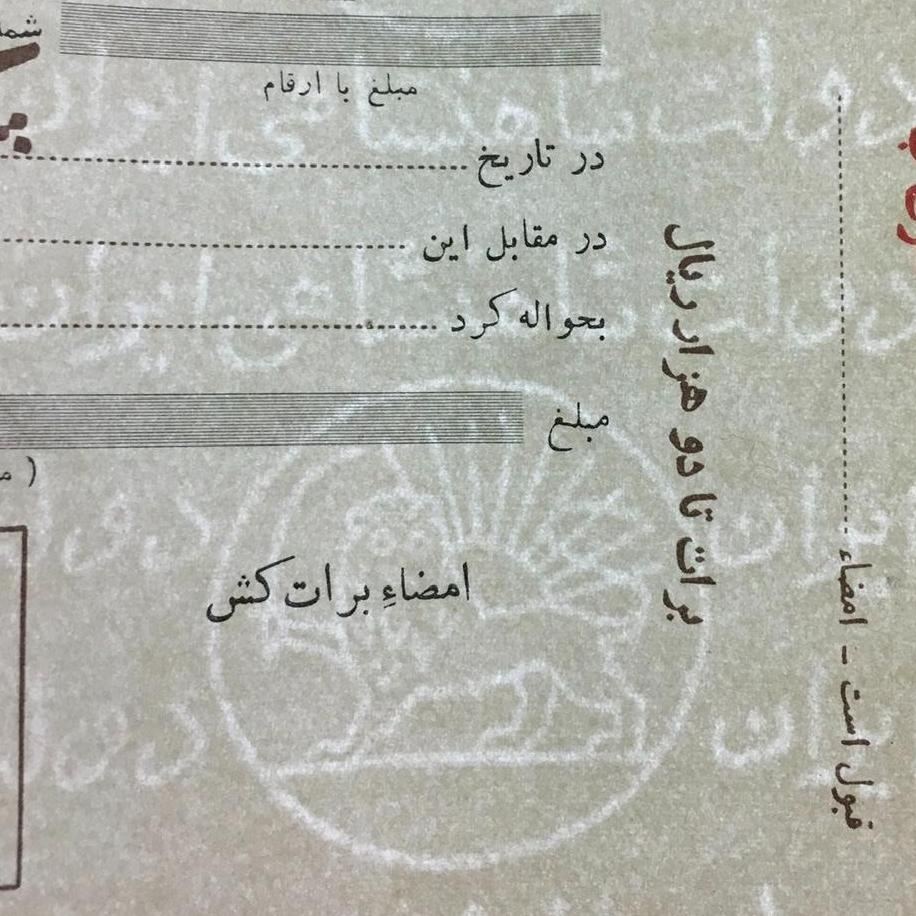 مبلغ با ارقام
در تاریخ
در مقابل این
بحواله کرد
مبلغ
امضاءِ برات کش
برات تا دو هزار ریال
قبول است - امضاء
دولت شاهنشاهی ایران